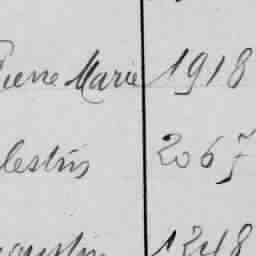 Pierre Marie 1918
lestin 2067
gustin 1248